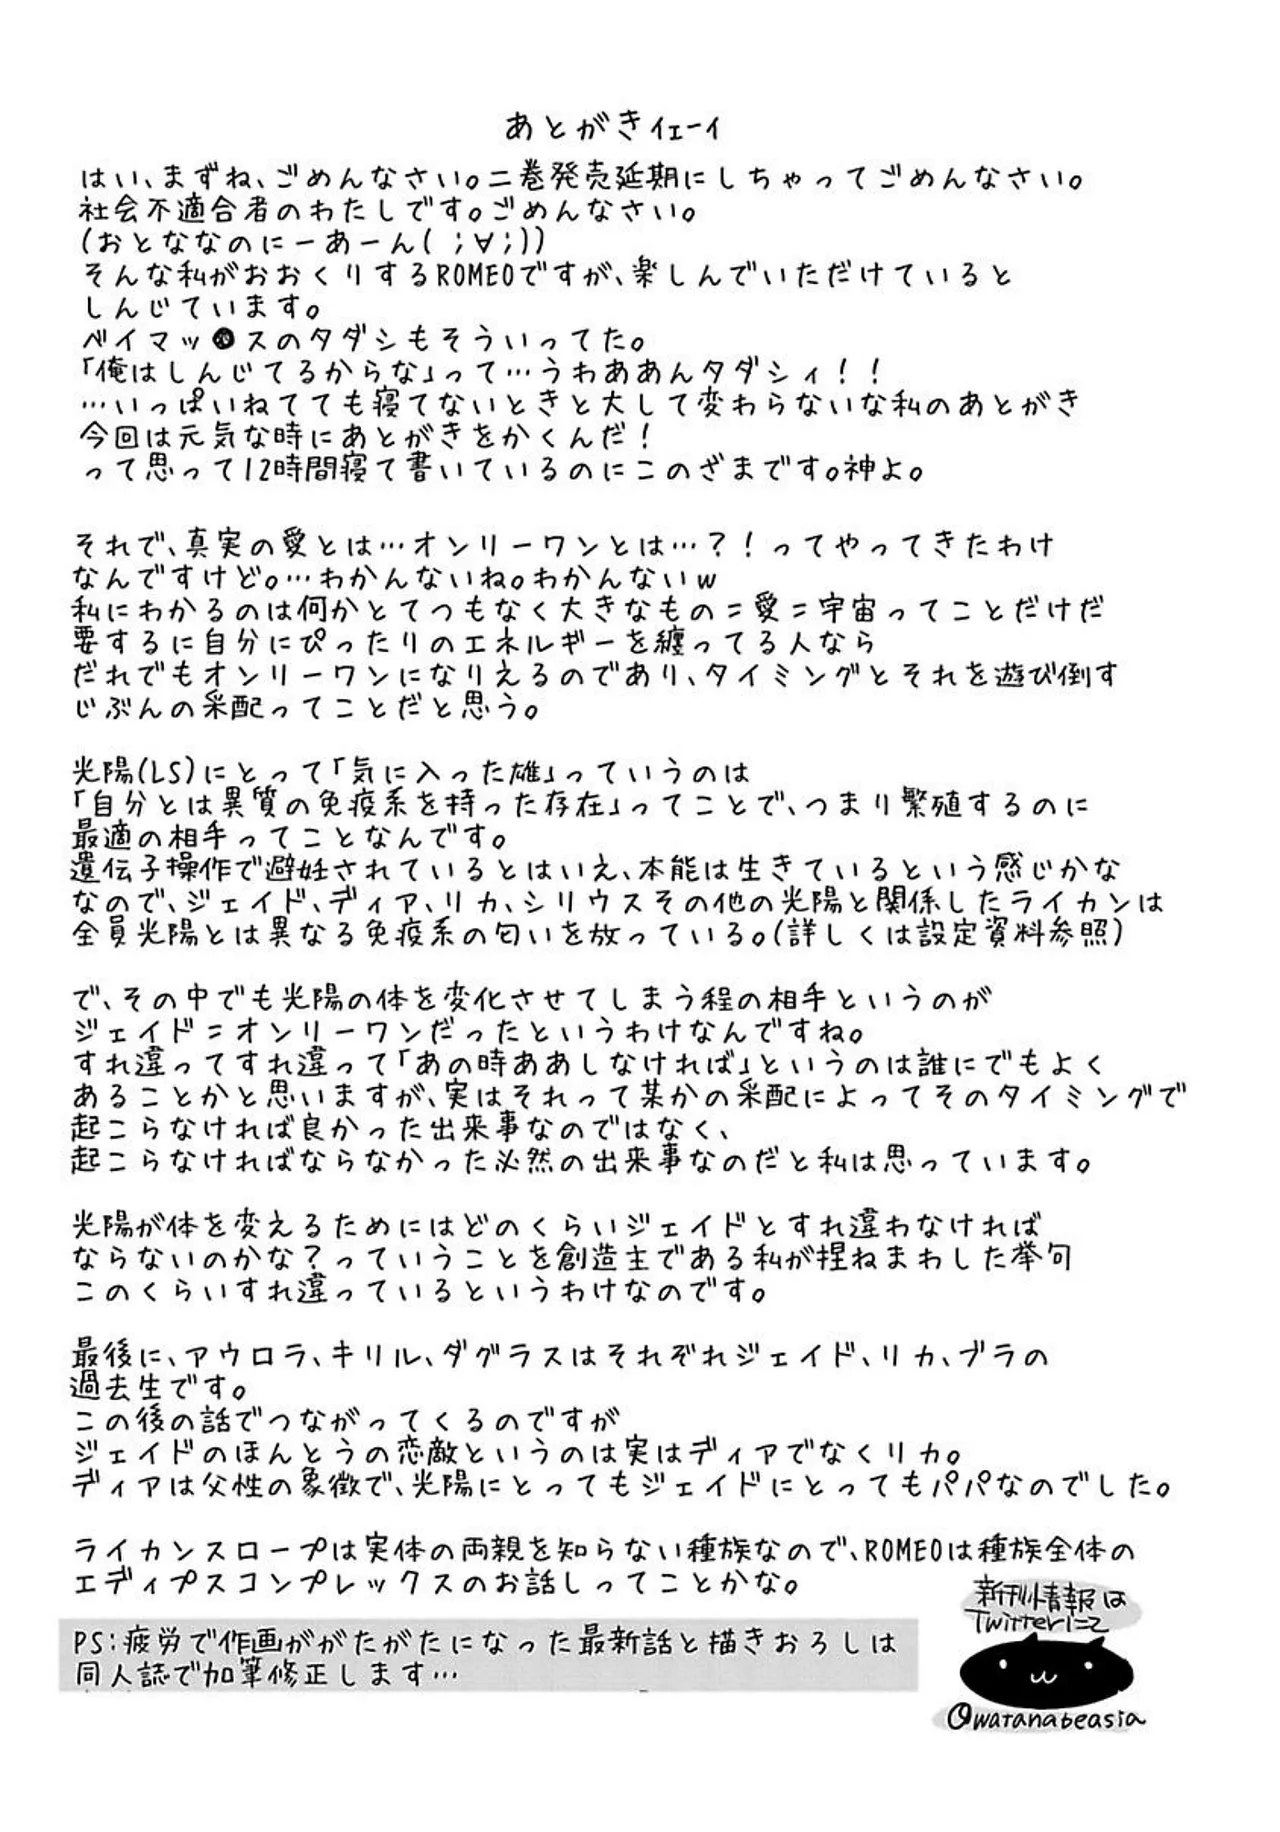 あとがきｲｪｰｲ
はい、まずね、ごめんなさい。二巻発売延期にしちゃってごめんなさい。
社会不適合者のわたしです。ごめんなさい。
(おとななのにーあーん( ;∀;))
そんな私がおおくりするROMEOですが、楽しんでいただけていると
しんじています。
ベイマッ●スのタダシもそういってた。
「俺はしんじてるからな」って…うわああんタダシィ！！
…いっぱいねてても寝てないときと大して変わらないな私のあとがき
今回は元気な時にあとがきをかくんだ！
って思って12時間寝て書いているのにこのざまです。神よ。
それで、真実の愛とは…オンリーワンとは…？！ってやってきたわけ
なんですけど。…わかんないね。わかんないw
私にわかるのは何かとてつもなく大きなもの=愛=宇宙ってことだけだ
要するに自分にぴったりのエネルギーを纏ってる人なら
だれでもオンリーワンになりえるのであり、タイミングとそれを遊び倒す
じぶんの采配ってことだと思う。
光陽(LS)にとって「気に入った雄」っていうのは
「自分とは異質の免疫系を持った存在」ってことで、つまり繁殖するのに
最適の相手ってことなんです。
遺伝子操作で避妊されているとはいえ、本能は生きているという感じかな
なので、ジェイド、ディア、リカ、シリウスその他の光陽と関係したライカンは
全員光陽とは異なる免疫系の匂いを放っている。(詳しくは設定資料参照)
で、その中でも光陽の体を変化させてしまう程の相手というのが
ジェイド=オンリーワンだったというわけなんですね。
すれ違ってすれ違って「あの時ああしなければ」というのは誰にでもよく
あることかと思いますが、実はそれって某かの采配によってそのタイミングで
起こらなければ良かった出来事なのではなく、
起こらなければならなかった必然の出来事なのだと私は思っています。
光陽が体を変えるためにはどのくらいジェイドとすれ違わなければ
ならないのかな？っていうことを創造主である私が捏ねまわした挙句
このくらいすれ違っているというわけなのです。
最後に、アウロラ、キリル、ダグラスはそれぞれジェイド、リカ、ブラの
過去生です。
この後の話でつながってくるのですが
ジェイドのほんとうの恋敵というのは実はディアでなくリカ。
ディアは父性の象徴で、光陽にとってもジェイドにとってもパパなのでした。
ライカンスロープは実体の両親を知らない種族なので、ROMEOは種族全体の
エディプスコンプレックスのお話しってことかな。
PS:疲労で作画ががたがたになった最新話と描きおろしは
同人誌で加筆修正します…
新刊情報は
Twitterにて
@watanabeasia